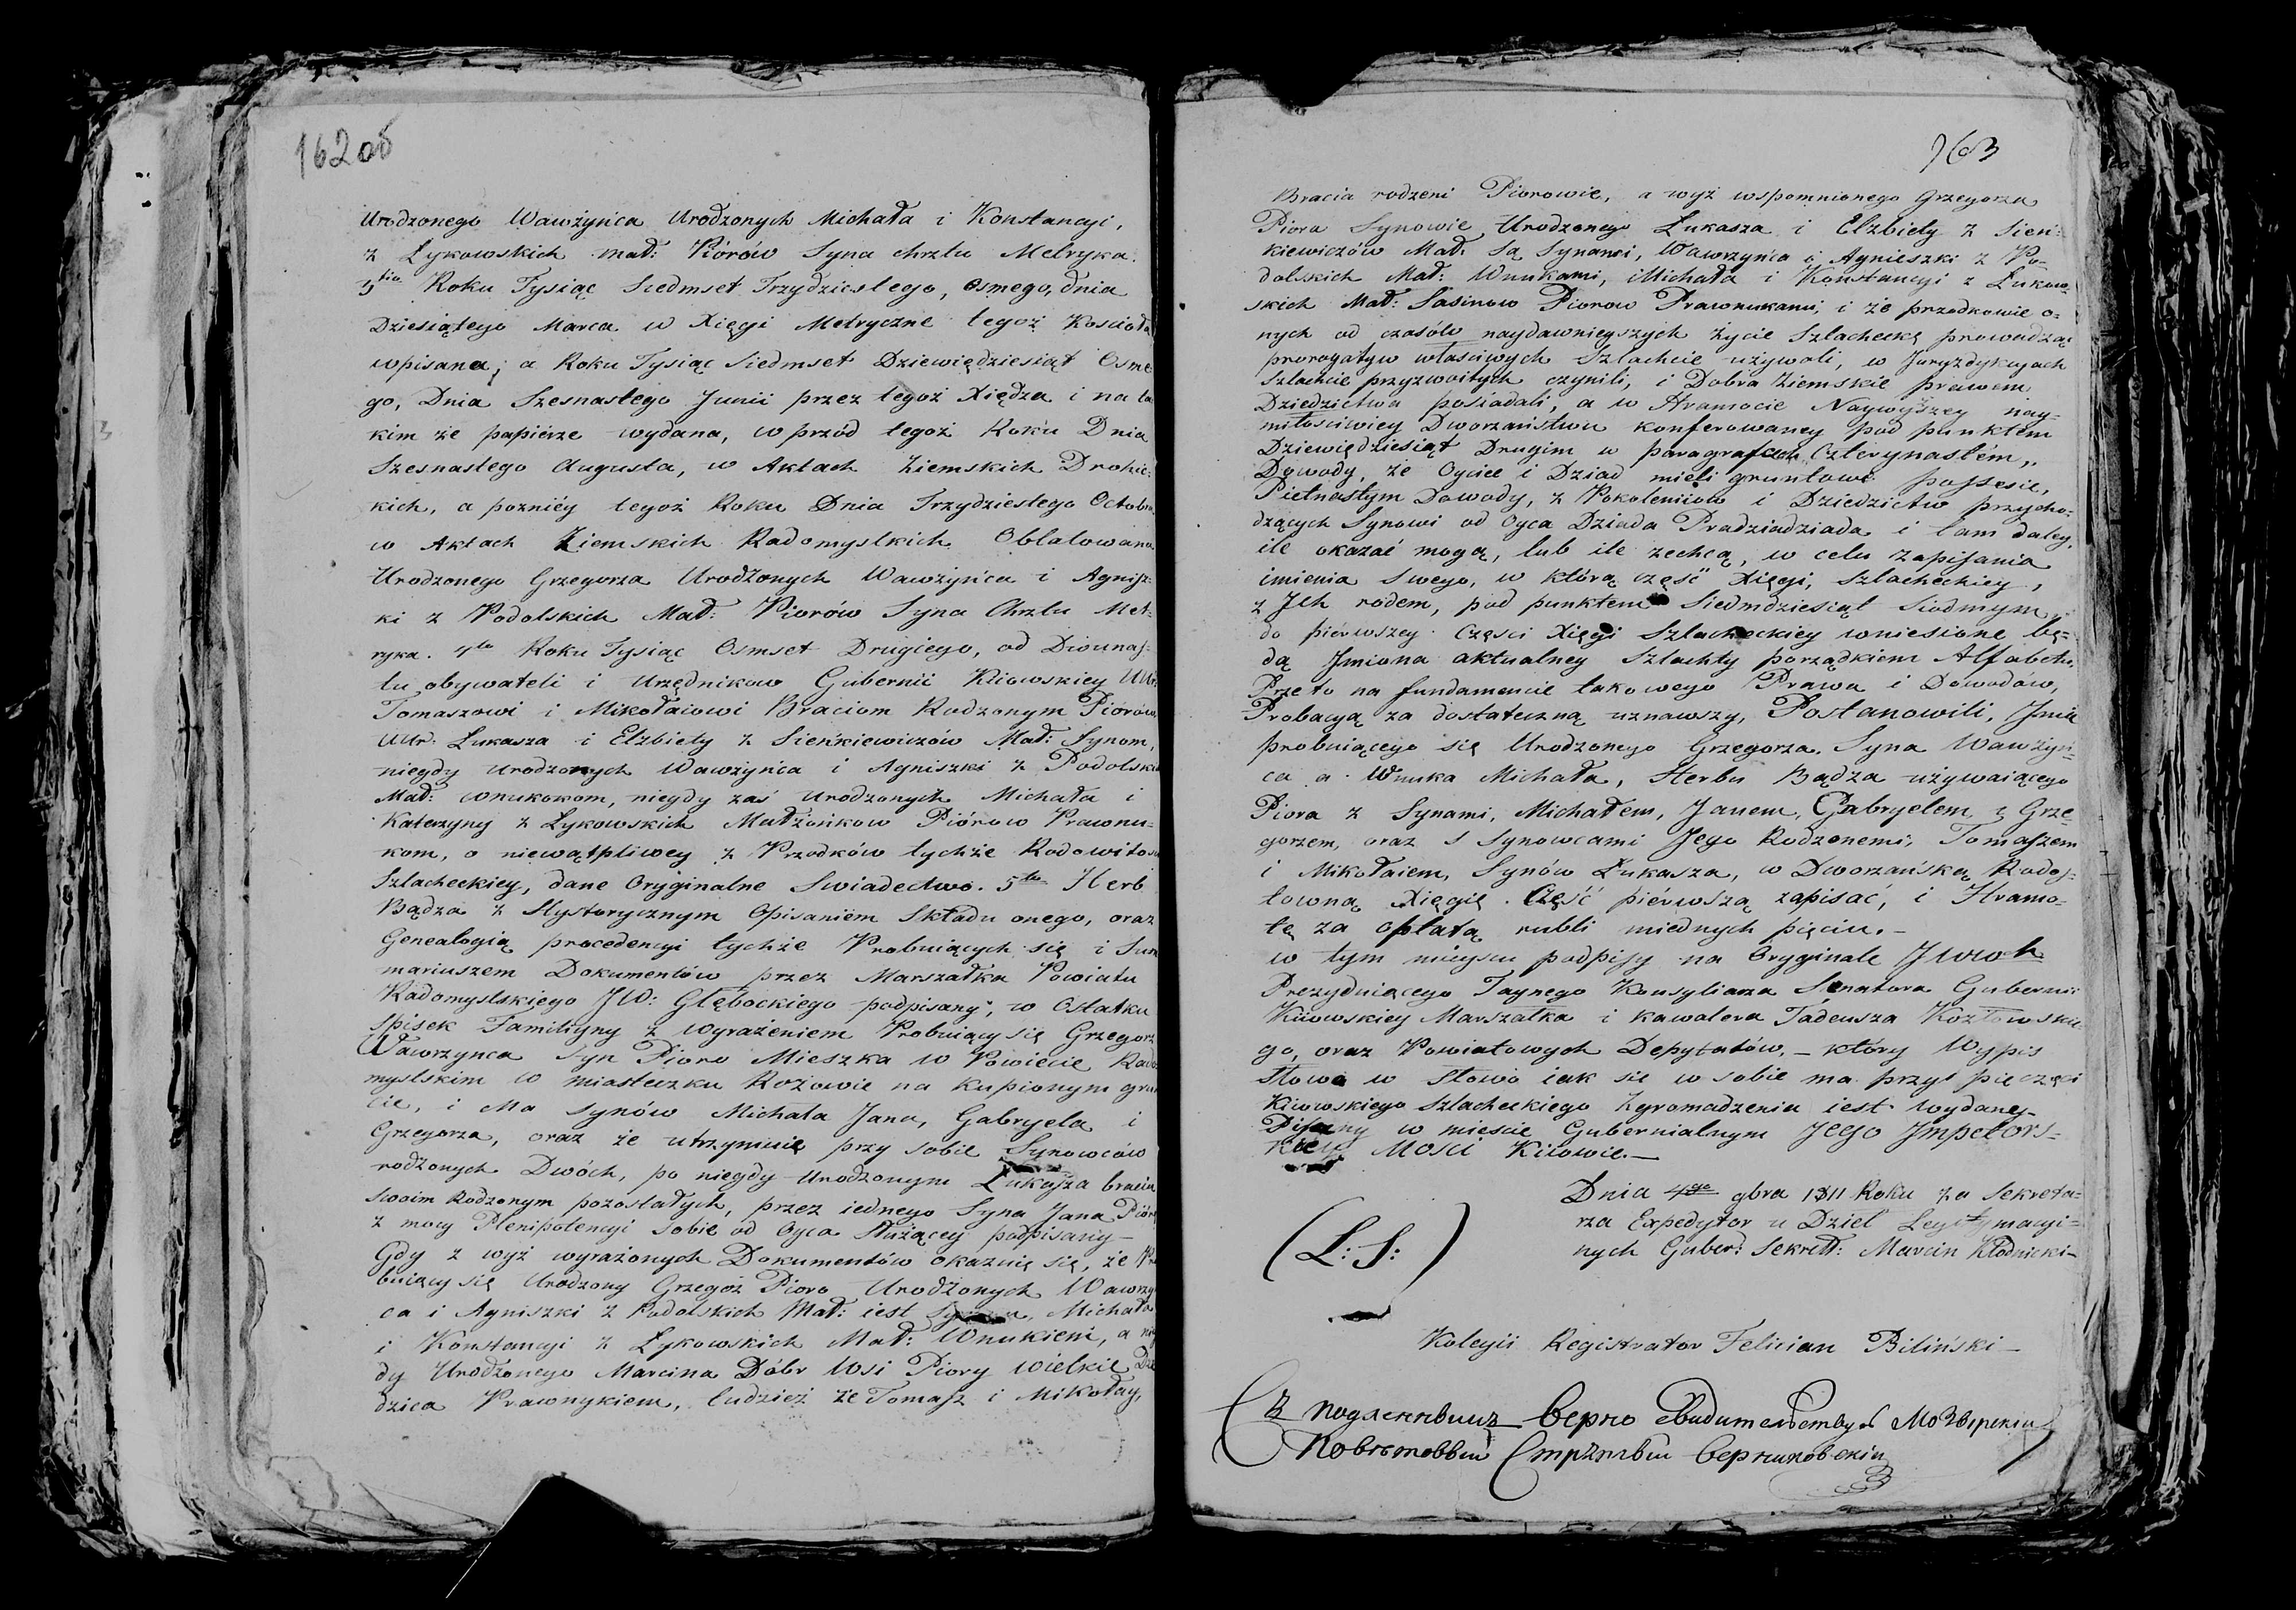 162 об
Urodzonego Wawżyńca Urodzonych Michała i Konstancyi,
z Łykowskich mał: Piórów Syna chrztu Metryka.
3tio Roku Tysiąc Siedmset Trzydziestego, osmego, dnia
Dziesiątego Marca w Xięgi Metryczne tegoż Kościoła
wpisana; a Roku Tysiąc Siedmset Dziewiędziesiąt Osme
go, Dnia Szesnastego Junii przez tegoż Xiędza i na ta
kim że papiérze wydana, w przód tegoż Roku Dnia
Szesnastego Augusta, w Aktach Ziemskich Drohic:
kich, a poznićy tegoż Roku Dnia Trzydziestego Octobra
w Aktach Ziemskich Radomyslkich Oblatowana
Urodzonego Grzegorza Urodzonych Wawżyńca i Agnisz:
ki z Podolskich Mał: Piorów Syna Chrztu Met:
ryka. 4to Roku Tysiąc Osmset Drugiego, od Dwunas:
tu obywateli i Urzędnikow Gubernii Kiiowskiey UUr:
Tomaszowi i Mikołaiowi Braciom Rodzonym Piorów
UUr: Łukasza i Elzbiety z Sieńkiewiczów Mał: Synom,
niegdy urodzonych Wawżyńca i Agniszki z Podolskich
Mał: wnukowom, niegdy zaś Urodzonych Michała i
Katerzyny z Łykowskich Małżońkow Piórow Prawnu:
kom, o niewątpliwey z Przodków tychże Rodowitos
Szlacheckiey, dane Oryginalne Swiadectwo. 5to Herb
Bądza z Hystorycznym Opisaniem Składu onego, oraz
Genealogią procedencyi tychże Probuiących się i Sum
mariuszem Dokumentów przez Marszałka Powiatu
Radomyslskiego JW: Głębockiego podpisany; w Ostatku
spisek Familiyny z wyrażeniem Probuiący się Grzegorz
Wawrzynca syn Pioro Mieszka w Powiecie Rado
myslskim w miasteczku Rożowie na kupionym grun
cie, i Ma synów Michała Jana, Gabryela i
Grzegorza, oraz że utrzymuie przy sobie Synowców
rodzonych Dwóch, po niegdy Urodzonym Łukasza bracia
swoim Rodzonym pozostałych, przez iednego Syna Jana Pióro
z mocy Plenipotencyi sobie od Oyca służącey podpisany—
Gdy z wyż wyrażonych Dokumentów okazuię się, że Pro
buiący się Urodzony Grzegoż Pioro Urodzonych Wawrzy
ca i Agniszki z Podolskich Mał: iest Synem, Michała
i Konstancyi z Łykowskich Mał: Wnukiem, a nieg
dy Urodzonego Marcina Dóbr Wsi Piory Wielkie Dzie
dzica Prawnykiem, tudzież że Tomasz i Mikołay,
163
Bracia rodzeni Piorowie, a wyż wspomnionego Grzegorza
Piora Synowie Urodzonego Łukasza i Elzbiety z Sien:
kiewiczów Mał: Są Synami, Wawrzyńca i Agnieszki z Po=
dolskich Mał: Wnukami, i Michała i Konstancyi z Łukow
skich Mał: Sasinow Piorow Prawnukami, i że przodkowie o=
nych od czasów naydawnieyszych życie Szlacheckę prowadząc
prorogatyw właściwych Szlachcie używali, w Juryzdykcyach
Szlachcie przyzwoitych czynili, i Dobra Ziemskie prawem
Dziedzictwa posiadali, a w Hramocie Naywyższey nay=
miłościwiey Dworzaństwu konferowaney pod punktem
Dziewiędziesiąt Drugim w paragrafach Czterynastem,
Dowody, że Oyciec i Dziad mieli gruntowe possesie,
Pietnastym Dowody, z Pokoleniiow i Dziedzictw przycho=
dzących Synowi od Oyca Dziada Pradziadziada i tam daley,
ile okazać mogą, lub ile zechcą, w celu zapisania
imienia Swego, w którą część Xięgi, Szlacheckiey,
z Ich rodem, pod punktem Siedmdziesiąt Siodmym,
do piérwszey Częsci Xięgi Szlacheckiey wniesione bę=
dą Jmiona aktualney Szlachty porządkiem Alfabetu.
Przeto na fundamencie takowego Prawa i Dowodów,
Probacyą za dostateczną uznawszy, Postanowili, Jmie
probuiącego się Urodzonego Grzegorza, Syna Wawżyń
ca a Wnuka Michała, Herbu Bądza używaiącego
Piora z Synami, Michałem, Janem, Gabryelem, i Grze=
gorzem, oraz s Synowcami Jego Rodzonemi, Tomaszem
i Mikołaiem, Synów Łukasza, w Dworzańską Rodos=
łowną Xięgię. Część piérwszą zapisać, i Hramo=
tę za opłatą rubli miednych pięciu.—
w tym mieyscu podpisy na Oryginale JWWch
Prezyduiącego Taynego Konsyliarza Senatora Gubernii
Kiiowskiey Marszałka i kawalera Tadeusza Kozłowskie
go, oraz Powiatowych Deputatów,— który Wypis
Słowo w Słowo iak sie w sobie ma przyt pieczęci
Kiiowskiego Szlacheckiego Zgromadzenia iest wydany.
Pisany w miescie Gubernialnym Jego Jmpetors=
kiey Mosci Kiiowie.—
Dnia 4go gbra 1811 Roku za Sekreta=
rza Expedytor u Dzieł Legitymacyi=
nych Guber: Sekret: Marcin Kłodnicki—
(L: S:)
Kolegii Registrator Felician Biliński—
Съ подленнымъ верно свидительствуетъ Мозырский
Поветовый Стряпчий Верниковский